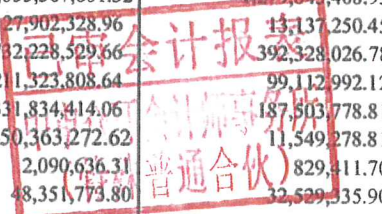 27,902,328.96 13,137,250.43
732,228,529.66 392,328,026.78
211,323,808.64 99,112,992.12
31,834,414.06 187,503,778.8
50,363,272.62 11,549,278.81
2,090,636.31 829,411.70
48,351,773.80 32,529,335.90
已审会计报表
会计师事务所
(特殊普通合伙)